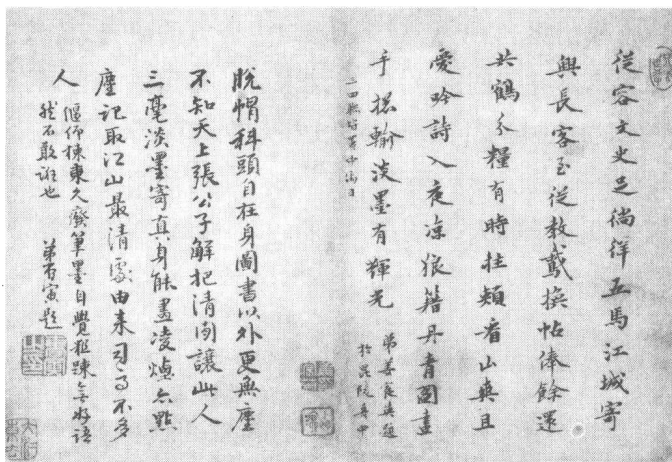 從容文史足徜徉五馬江城寄
興長客至從教戲帖俸餘還
共鶴分糧有時拄頰看山爽且
愛吟詩入夜涼狼籍丹青圖畫
手揔輸淡墨有輝光
弟姜宸英題
於吳陵舟中
脫帽科頭自在身圖書以外更無塵
不知天上張公子解把清閒讓此人
三毫淡墨寄真身能畫凌煙亦點
塵記取江山最清處由来司馬不多
人
偃仰楝東久廢筆墨自覺粗踈無好語
然不敢誑也 弟曹寅題